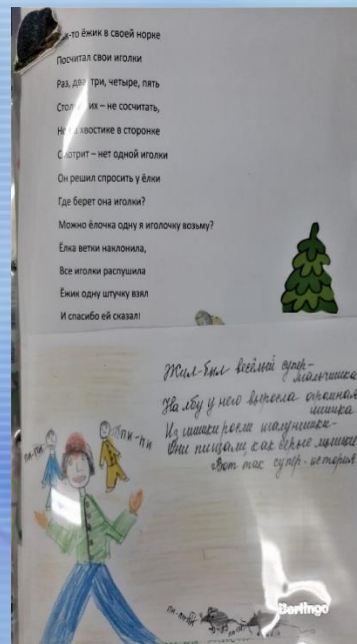 -то ёжик в своей норке
Посчитал свои иголки
Раз, два, три, четыре, пять
их – не сосчитать,
хвостике в сторонке
Смотрит – нет одной иголки
Он решил спросить у ёлки
Где берет она иголки?
Можно ёлочка одну я иголочку возьму?
Ёлка ветки наклонила,
Все иголки распушила
Ёжик одну штучку взял
И спасибо ей сказал!
Жил-был весёлый супер-
мальчишка
На лбу у него выросла огромная
шишка
Из шишки росли шалунишки-
Они пищали, как серые мышки
Вот так супер-история
пи-пи
пи-пи
пи-пи
Berlingo